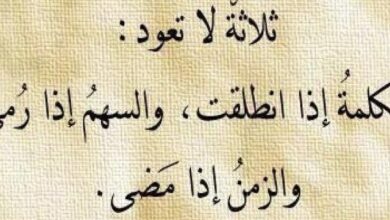 ثلاثةٌ لا تعود :
كلمةُ إذا انطلقت، والسهمُ إذا رُمي
والزمنُ إذا مَضى.